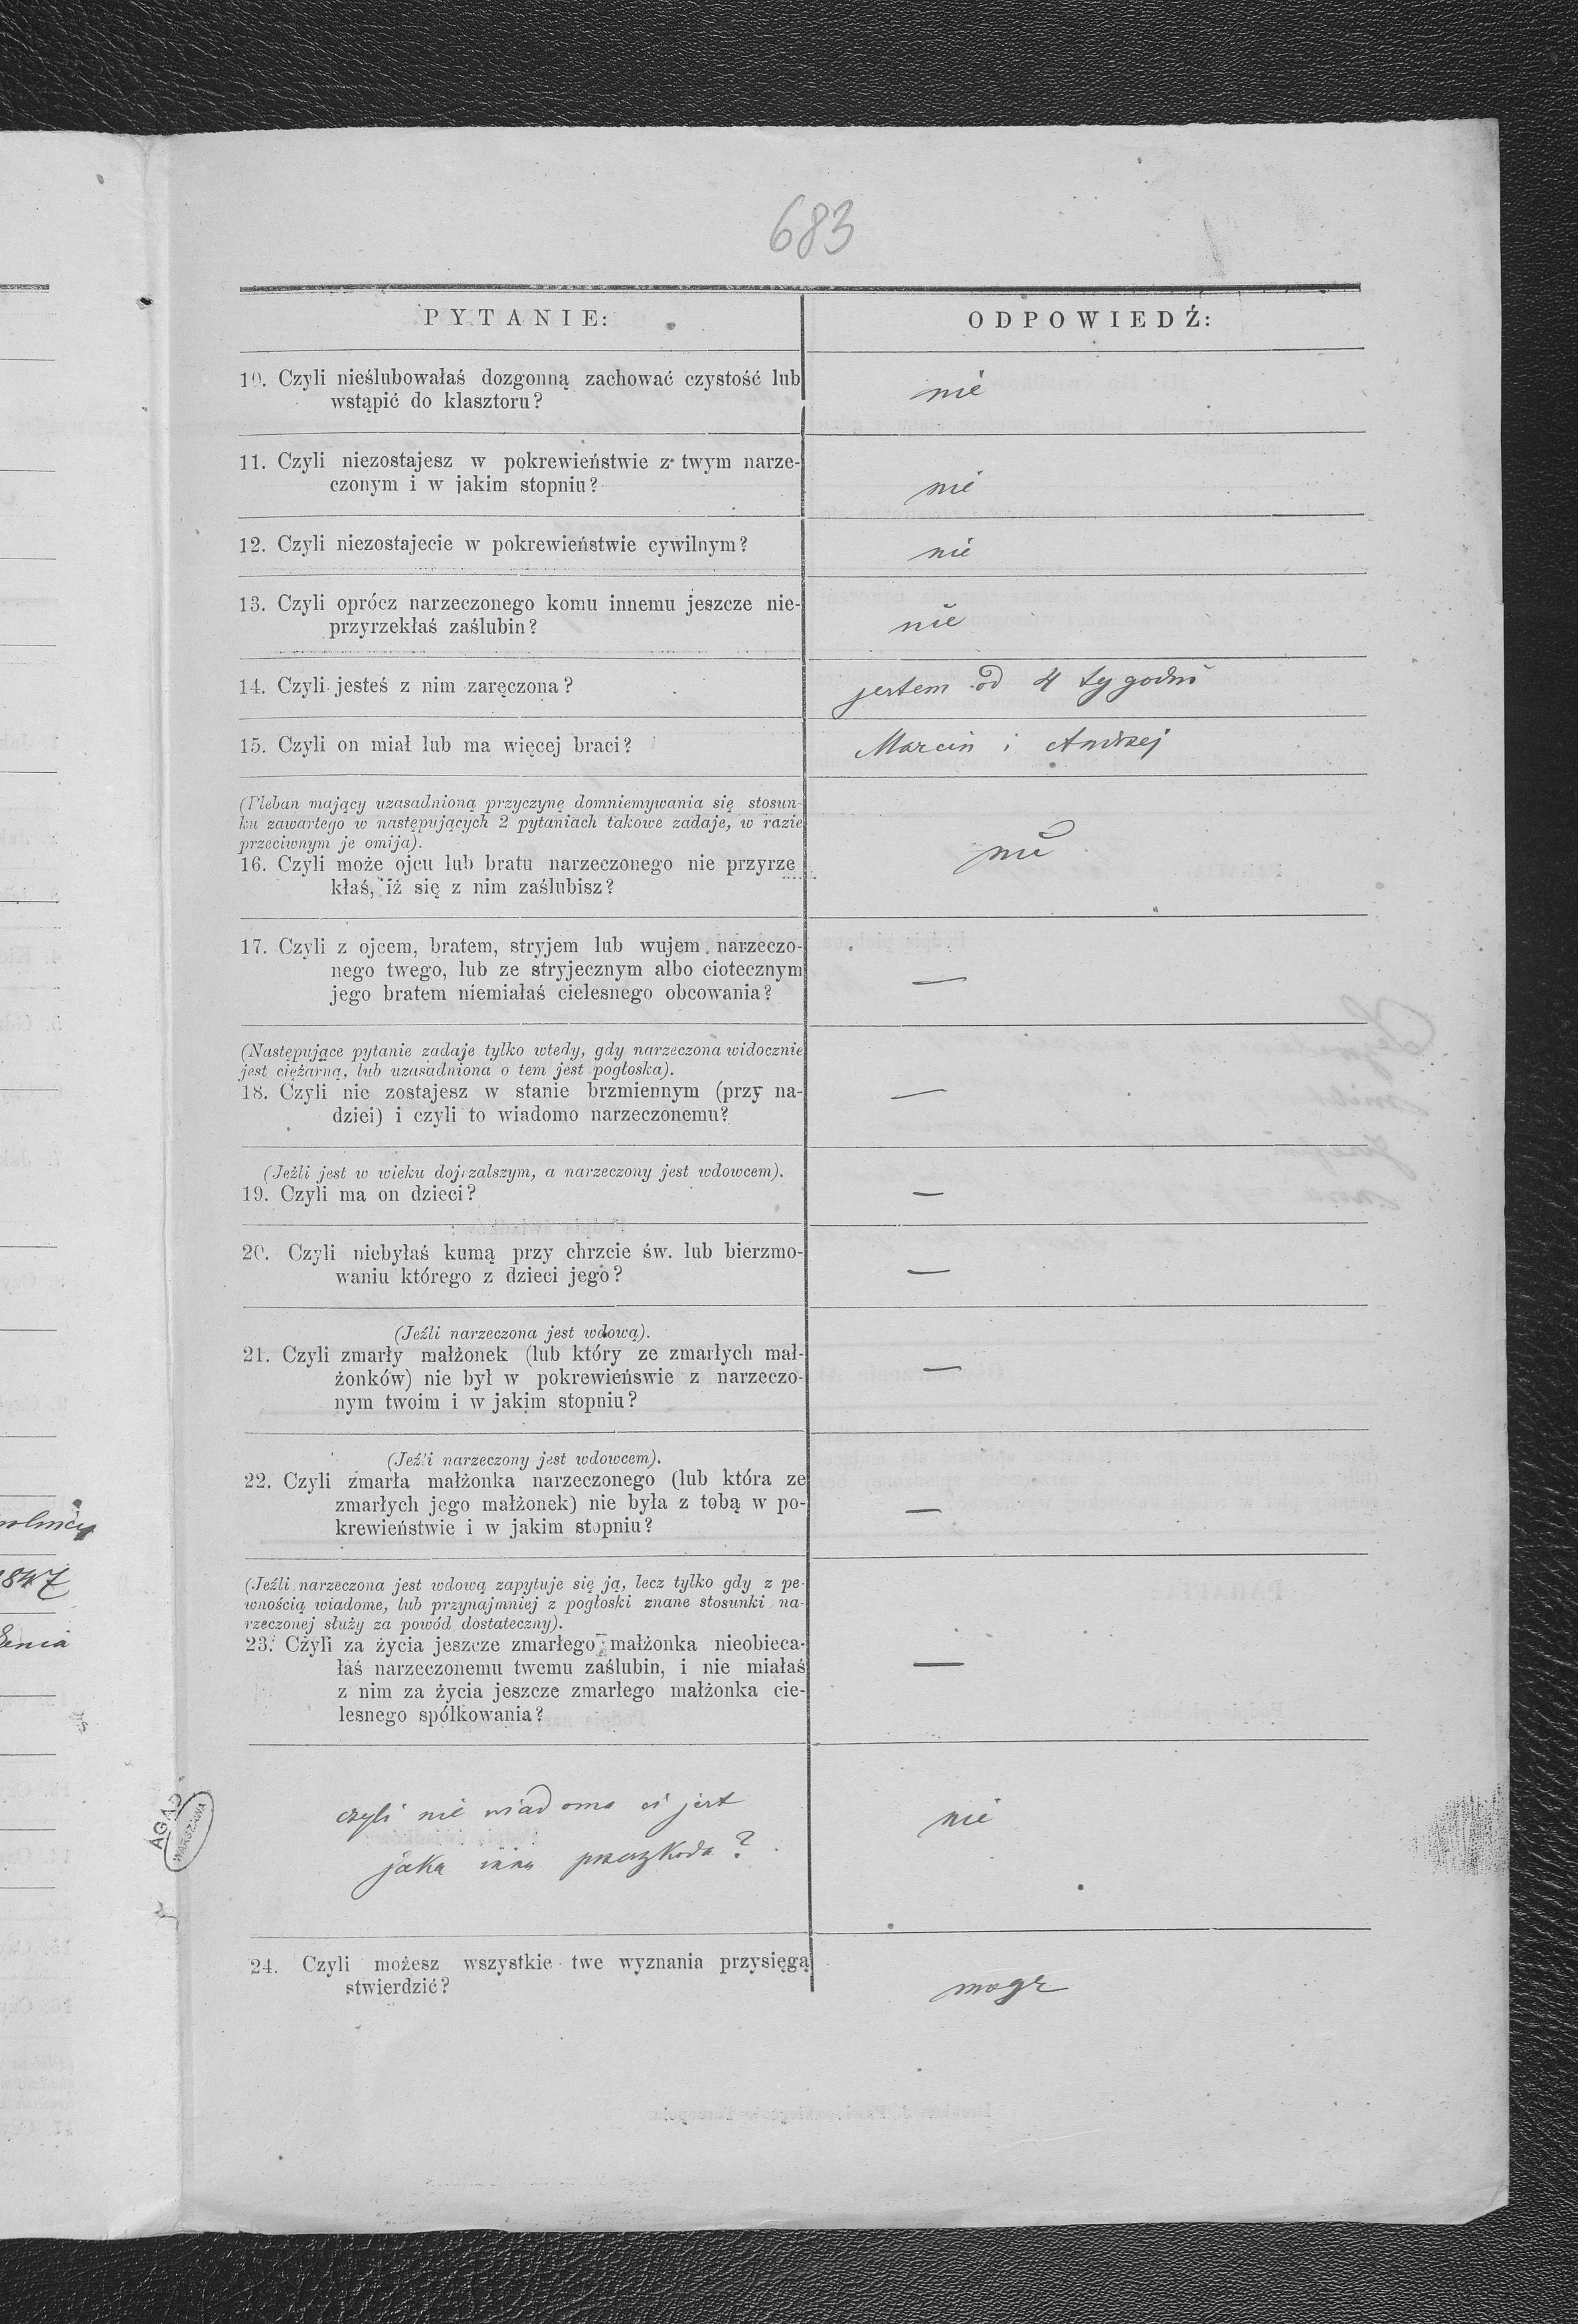 683
PYTANIE:
ODPOWIEDŹ:
10. Czyli nieślubowałaś dozgonną zachować czystość lub
wstąpić do klasztoru?
nie
11. Czyli niezostajesz w pokrewieństwie z twym narze-
czonym i w jakim stopniu?
nie
12. Czyli niezostajecie w pokrewieństwie cywilnym?
nie
13. Czyli oprócz narzeczonego komu innemu jeszcze nie-
przyrzekłaś zaślubin?
nie
14. Czyli jesteś z nim zaręczona?
jestem od 4 tygodni
15. Czyli on miał lub ma więcej braci?
Marcin i Andrzej
(Pleban mający uzasadnioną przyczynę domniemywania się stosun-
ku zawartego w następujących 2 pytaniach takowe zadaje, w razie
przeciwnym je omija).
16. Czyli może ojcu lub bratu narzeczonego nie przyrze
kłaś, iż się z nim zaślubisz?
nie
17. Czyli z ojcem, bratem, stryjem lub wujem narzeczo-
nego twego, lub ze stryjecznym albo ciotecznym
jego bratem niemiałaś cielesnego obcowania?
—
(Następujące pytanie zadaje tylko wtedy, gdy narzeczona widocznie
jest ciężarną, lub uzasadniona o tem jest pogłoska).
18. Czyli nie zostajesz w stanie brzmiennym (przy na-
dziei) i czyli to wiadomo narzeczonemu?
—
(Jeżli jest w wieku dojrzalszym, a narzeczony jest wdowcem).
19. Czyli ma on dzieci?
—
20. Czyli niebyłaś kumą przy chrzcie św. lub bierzmo-
waniu którego z dzieci jego?
—
(Jeźli narzeczona jest wdową).
21. Czyli zmarły małżonek (lub który ze zmarłych mał-
żonków) nie był w pokrewieńswie z narzeczo-
nym twoim i w jakim stopniu?
—
(Jeźli narzeczony jest wdowcem).
22. Czyli zmarła małżonka narzeczonego (lub która ze
zmarłych jego małżonek) nie była z tobą w po-
krewieństwie i w jakim stopniu?
—
(Jeźli narzeczona jest wdową zapytuje się ją, lecz tylko gdy z pe-
wnością wiadome, lub przynajmniej z pogłoski znane stosunki na-
rzeczonej służy za powód dostateczny).
23. Czyli za życia jeszcze zmarłego małżonka nieobieca-
łaś narzeczonemu twemu zaślubin, i nie miałaś
z nim za życia jeszcze zmarłego małżonka cie-
lesnego spółkowania?
—
czyli nie wiadoma ci jest
jaka inna przeszkoda?
nie
24. Czyli możesz wszystkie twe wyznania przysięgą
stwierdzić?
mogę
1847
AGAD
WARSZAWA